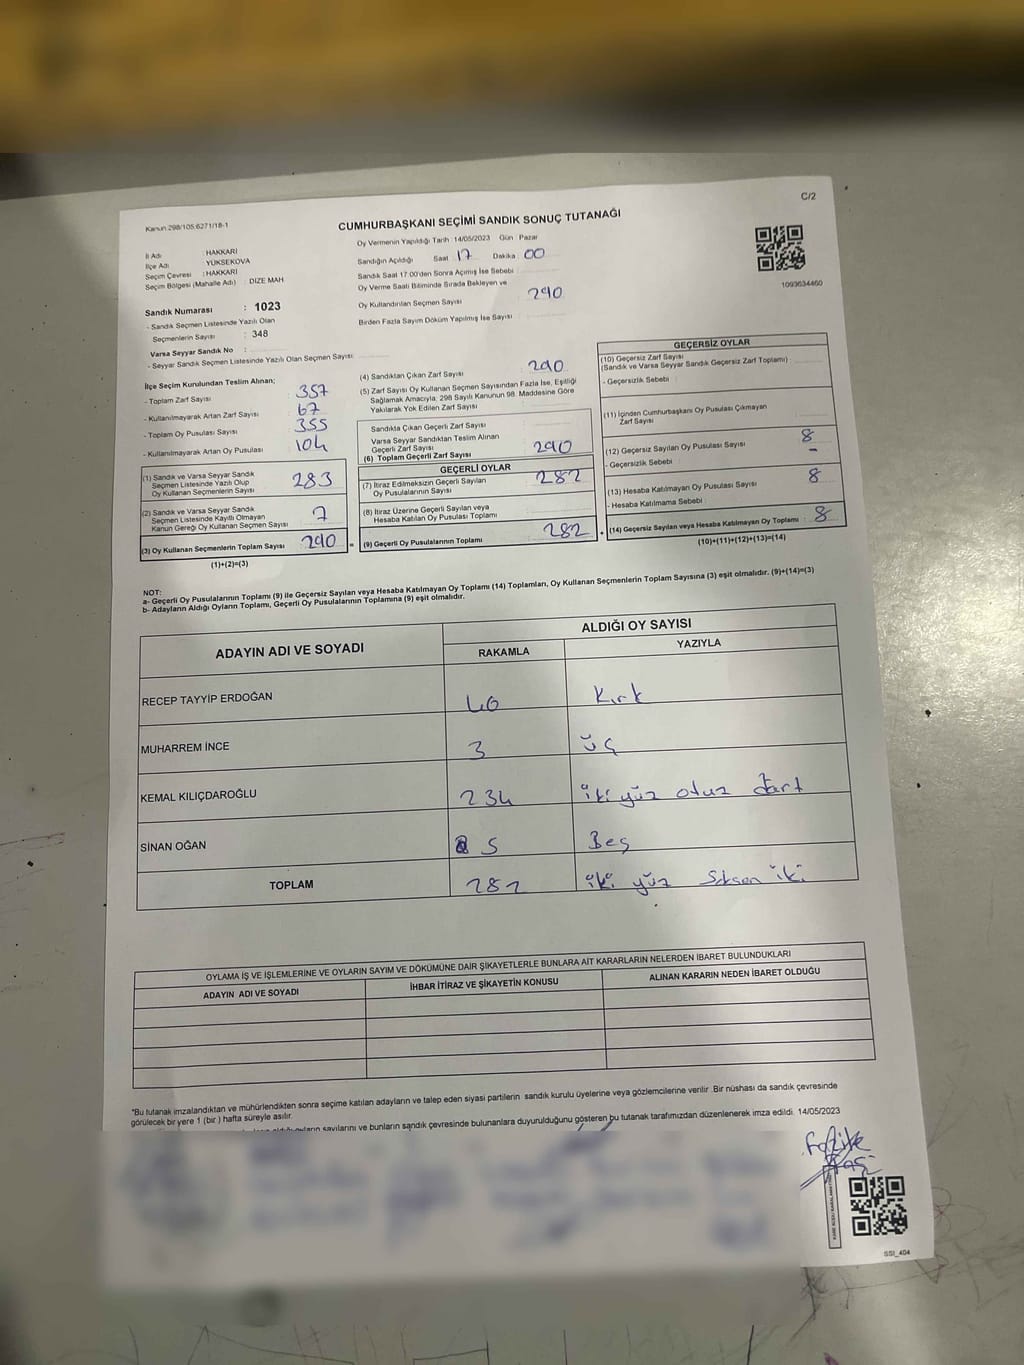 C/2
Kanun 298/105.6271/18-1
CUMHURBAŞKANI SEÇİMİ SANDIK SONUÇ TUTANAĞI
İl Adı : HAKKARİ
İlçe Adı : YÜKSEKOVA
Seçim Çevresi : HAKKARİ
Seçim Bölgesi (Mahalle Adı) : DIZE MAH
Oy Vermenin Yapıldığı Tarih 14/05/2023 Gün Pazar
Sandığın Açıldığı Saat 17 Dakika 00
Sandık Saat 17:00'den Sonra Açımış İse Sebebi
Oy Verme Saati Bitiminde Sırada Bekleyen ve
Oy Kullandırılan Seçmen Sayısı 290
Birden Fazla Sayım Döküm Yapılmış İse Sayısı :
1093634460
Sandık Numarası : 1023
- Sandık Seçmen Listesinde Yazılı Olan
Seçmenlerin Sayısı : 348
Varsa Seyyar Sandık No :
- Seyyar Sandık Seçmen Listesinde Yazılı Olan Seçmen Sayısı :
İlçe Seçim Kurulundan Teslim Alınan;
- Toplam Zarf Sayısı 357
- Kullanılmayarak Artan Zarf Sayısı 67
- Toplam Oy Pusulası Sayısı 355
- Kullanılmayarak Artan Oy Pusulası 104
(1) Sandık ve Varsa Seyyar Sandık
Seçmen Listesinde Yazılı Olup
Oy Kullanan Seçmenlerin Sayısı 283
(2) Sandık ve Varsa Seyyar Sandık
Seçmen Listesinde Kayıtlı Olmayan
Kanun Gereği Oy Kullanan Seçmen Sayısı 7
(3) Oy Kullanan Seçmenlerin Toplam Sayısı 290 =
(1)+(2)=(3)
(4) Sandıktan Çıkan Zarf Sayısı 290
(5) Zarf Sayısı Oy Kullanan Seçmen Sayısından Fazla İse, Eşitliği
Sağlamak Amacıyla, 298 Sayılı Kanunun 98. Maddesine Göre
Yakılarak Yok Edilen Zarf Sayısı
Sandıkla Çıkan Geçerli Zarf Sayısı
Varsa Seyyar Sandıktan Teslim Alınan
Geçerli Zarf Sayısı
(6) Toplam Geçerli Zarf Sayısı 290
GEÇERLİ OYLAR
(7) İtiraz Edilmeksizin Geçerli Sayılan
Oy Pusulalarının Sayısı 282
(8) İtiraz Üzerine Geçerli Sayılan veya
Hesaba Katılan Oy Pusulası Toplamı
(9) Geçerli Oy Pusulalarının Toplamı 282 +
GEÇERSİZ OYLAR
(10) Geçersiz Zarf Sayısı
(Sandık ve Varsa Seyyar Sandık Geçersiz Zarf Toplamı)
- Geçersizlik Sebebi :
(11) İçinden Cumhurbaşkanı Oy Pusulası Çıkmayan
Zarf Sayısı
(12) Geçersiz Sayılan Oy Pusulası Sayısı 8
- Geçersizlik Sebebi : -
(13) Hesaba Katılmayan Oy Pusulası Sayısı 8
- Hesaba Katılmama Sebebi :
(14) Geçersiz Sayılan veya Hesaba Katılmayan Oy Toplamı 8
(10)+(11)+(12)+(13)=(14)
NOT:
a- Geçerli Oy Pusulalarının Toplamı (9) ile Geçersiz Sayılan veya Hesaba Katılmayan Oy Toplamı (14) Toplamları, Oy Kullanan Seçmenlerin Toplam Sayısına (3) eşit olmalıdır. (9)+(14)=(3)
b- Adayların Aldığı Oyların Toplamı, Geçerli Oy Pusulalarının Toplamına (9) eşit olmalıdır.
ADAYIN ADI VE SOYADI
ALDIĞI OY SAYISI
RAKAMLA YAZIYLA
RECEP TAYYİP ERDOĞAN 40 Kırk
MUHARREM İNCE 3 üç
KEMAL KILIÇDAROĞLU 234 iki yüz otuz dört
SİNAN OĞAN 5 Beş
TOPLAM 282 iki yüz Seksen iki
OYLAMA İŞ VE İŞLEMLERİNE VE OYLARIN SAYIM VE DÖKÜMÜNE DAİR ŞİKAYETLERLE BUNLARA AİT KARARLARIN NELERDEN İBARET BULUNDUKLARI
ADAYIN ADI VE SOYADI İHBAR İTİRAZ VE ŞİKAYETİN KONUSU ALINAN KARARIN NEDEN İBARET OLDUĞU
*Bu tutanak imzalandıktan ve mühürlendikten sonra seçime katılan adayların ve talep eden siyasi partilerin sandık kurulu üyelerine veya gözlemcilerine verilir .Bir nüshası da sandık çevresinde
görülecek bir yere 1 (bir ) hafta süreyle asılır.
sayılarını ve bunların sandık çevresinde bulunanlara duyurulduğunu gösteren bu tutanak tarafımızdan düzenlenerek imza edildi. 14/05/2023
SSI_404